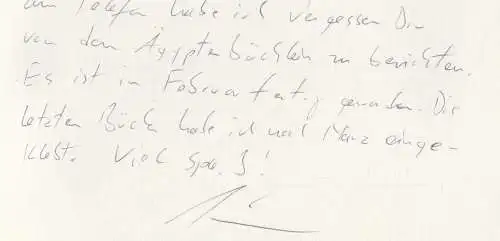 am Telefon habe ich vergessen Dir
von dem Ägyptenbüchlein zu berichten.
Es ist im Februar fertig geworden. Die
letzten Bücher habe ich noch März einge-
klebt. Viel Spaß!